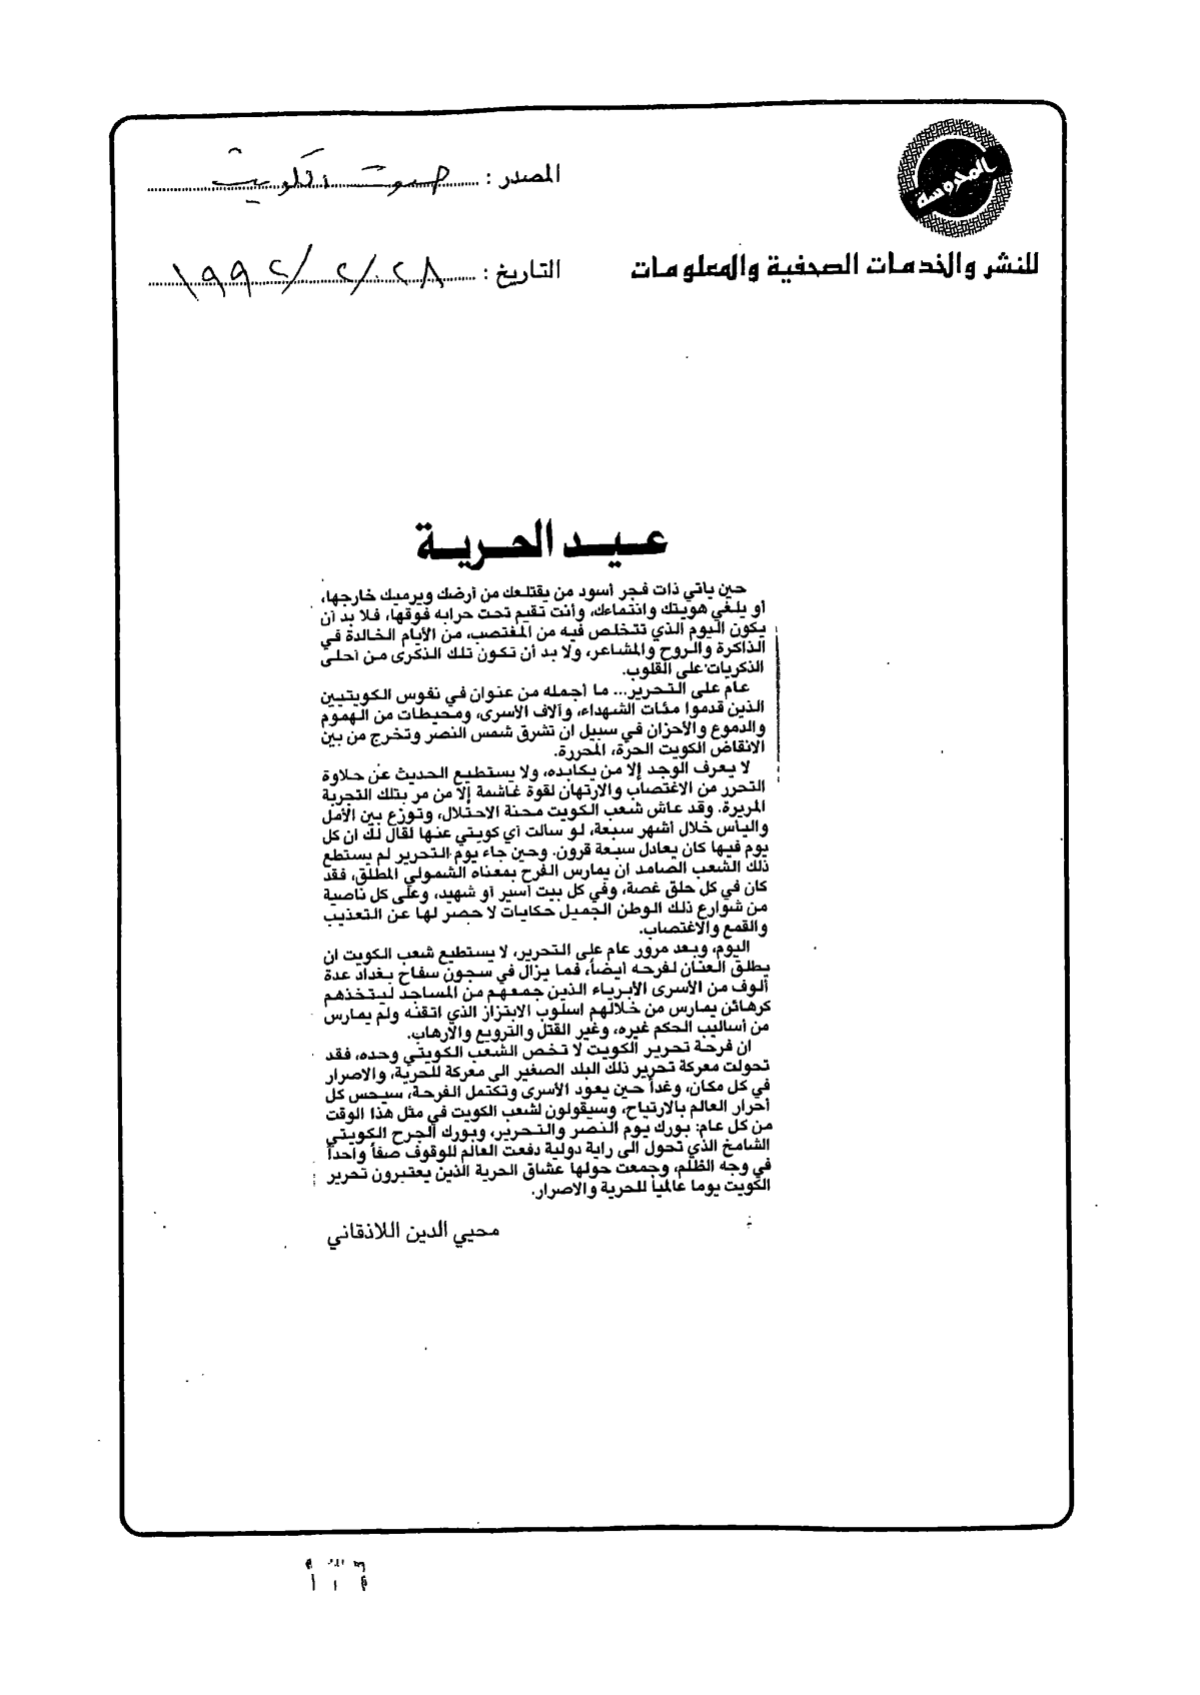 المحروسة
المصدر : صوت الكويت
للنشر والخدمات الصحفية والمعلومات
التاريخ : ٢٨/٢/١٩٩٢
عيد الحرية
حين ياتي ذات فجر أسود من يقتلعك من أرضك ويرميك خارجها،
أو يلغي هويتك وانتماءك، وأنت تقيم تحت حرابه فوقها، فلا بد أن
يكون اليوم الذي تتخلص فيه من المغتصب، من الأيام الخالدة في
الذاكرة والروح والمشاعر، ولا بد أن تكون تلك الذكرى من أحلى
الذكريات على القلوب.
عام على التحرير... ما أجمله من عنوان في نفوس الكويتيين
الذين قدموا مئات الشهداء، وآلاف الأسرى، ومحيطات من الهموم
والدموع والأحزان في سبيل ان تشرق شمس النصر وتخرج من بين
الانقاض الكويت الحرة، المحررة.
لا يعرف الوجد إلا من يكابده، ولا يستطيع الحديث عن حلاوة
التحرر من الاغتصاب والارتهان لقوة غاشمة إلا من مر بتلك التجربة
المريرة. وقد عاش شعب الكويت محنة الاحتلال، وتوزع بين الأمل
والياس خلال أشهر سبعة، لو سالت أي كويتي عنها لقال لك ان كل
يوم فيها كان يعادل سبعة قرون. وحين جاء يوم التحرير لم يستطع
ذلك الشعب الصامد ان يمارس الفرح بمعناه الشمولي المطلق، فقد
كان في كل حلق غصة، وفي كل بيت أسير أو شهيد، وعلى كل ناصية
من شوارع ذلك الوطن الجميل حكايات لا حصر لها عن التعذيب
والقمع والاغتصاب.
اليوم، وبعد مرور عام على التحرير، لا يستطيع شعب الكويت ان
يطلق العنان لفرحه أيضاً، فما يزال في سجون سفاح بغداد عدة
ألوف من الأسرى الأبرياء الذين جمعهم من المساجد ليتخذهم
كرهائن يمارس من خلالهم اسلوب الابتزاز الذي اتقنه ولم يمارس
من أساليب الحكم غيره، وغير القتل والترويع والارهاب.
ان فرحة تحرير الكويت لا تخص الشعب الكويتي وحده، فقد
تحولت معركة تحرير ذلك البلد الصغير الى معركة للحرية، والاصرار
في كل مكان، وغداً حين يعود الأسرى وتكتمل الفرحة، سيحس كل
أحرار العالم بالارتياح، وسيقولون لشعب الكويت في مثل هذا الوقت
من كل عام: بورك يوم النصر والتحرير، وبورك الجرح الكويتي
الشامخ الذي تحول الى راية دولية دفعت العالم للوقوف صفاً واحداً
في وجه الظلم، وجمعت حولها عشاق الحرية الذين يعتبرون تحرير
الكويت يوما عالمياً للحرية والاصرار.
محيي الدين اللاذقاني